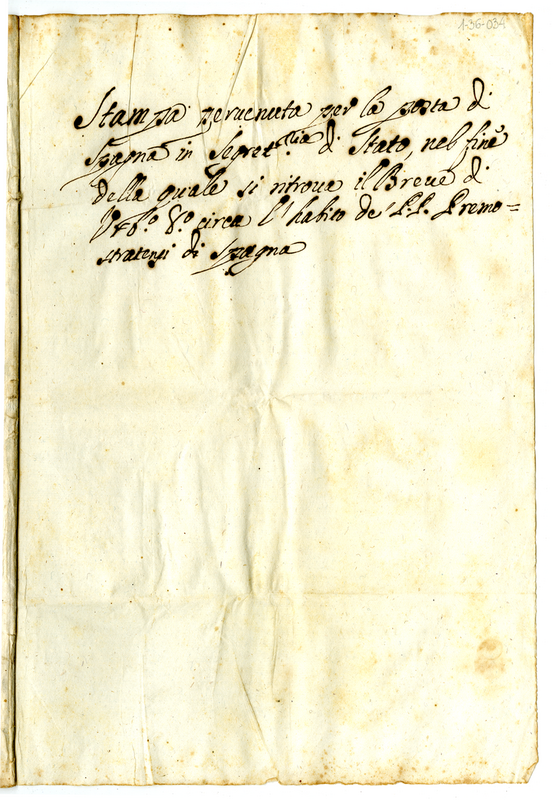 1-36-034
Stampa pervenuta per la posta di
Spagna in Segret.ria di Stato, nel fine
della quale si ritrova il Breve di
Urb.o 8.o circa l'habito de' P.P. Premo=
stratensi di Spagna